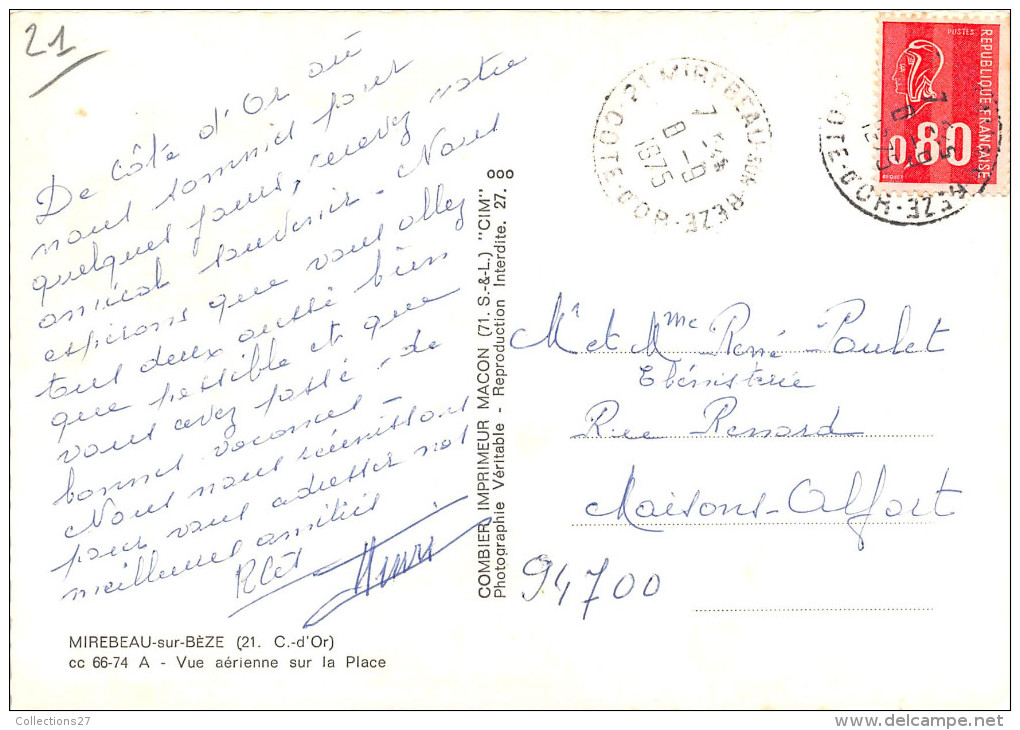 21
De Côte d'Or où
nous sommes pour
quelques jours, recevez notre
amical souvenir - Nous
espérons que vous allez
tous deux aussi bien
que possible et que
vous avez passé de
bonnes vacances -
Nous nous réunissons
pour vous adresser nos
meilleures amitiés
MIREBEAU-sur-BÈZE (21. C.-d'Or)
cc 66-74 A - Vue aérienne sur la Place
COMBIER IMPRIMEUR MACON (71. S.-&-L.) "CIM"
Photographie Véritable - Reproduction Interdite. 27.
21 MIREBEAU-SUR-BEZE
COTE-D'OR
7-8
1975
POSTES
REPUBLIQUE FRANÇAISE
0,80
BEZE
COTE-D'OR
Mr et Mme René Poulet
Ebénisterie
Rue Renard
Maisons-Alfort
94700
Collections27